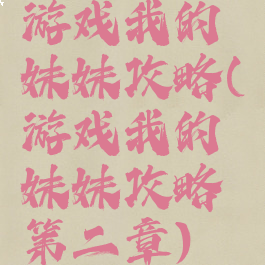 游戏我的
妹妹攻略(
游戏我的
妹妹攻略
第二章)